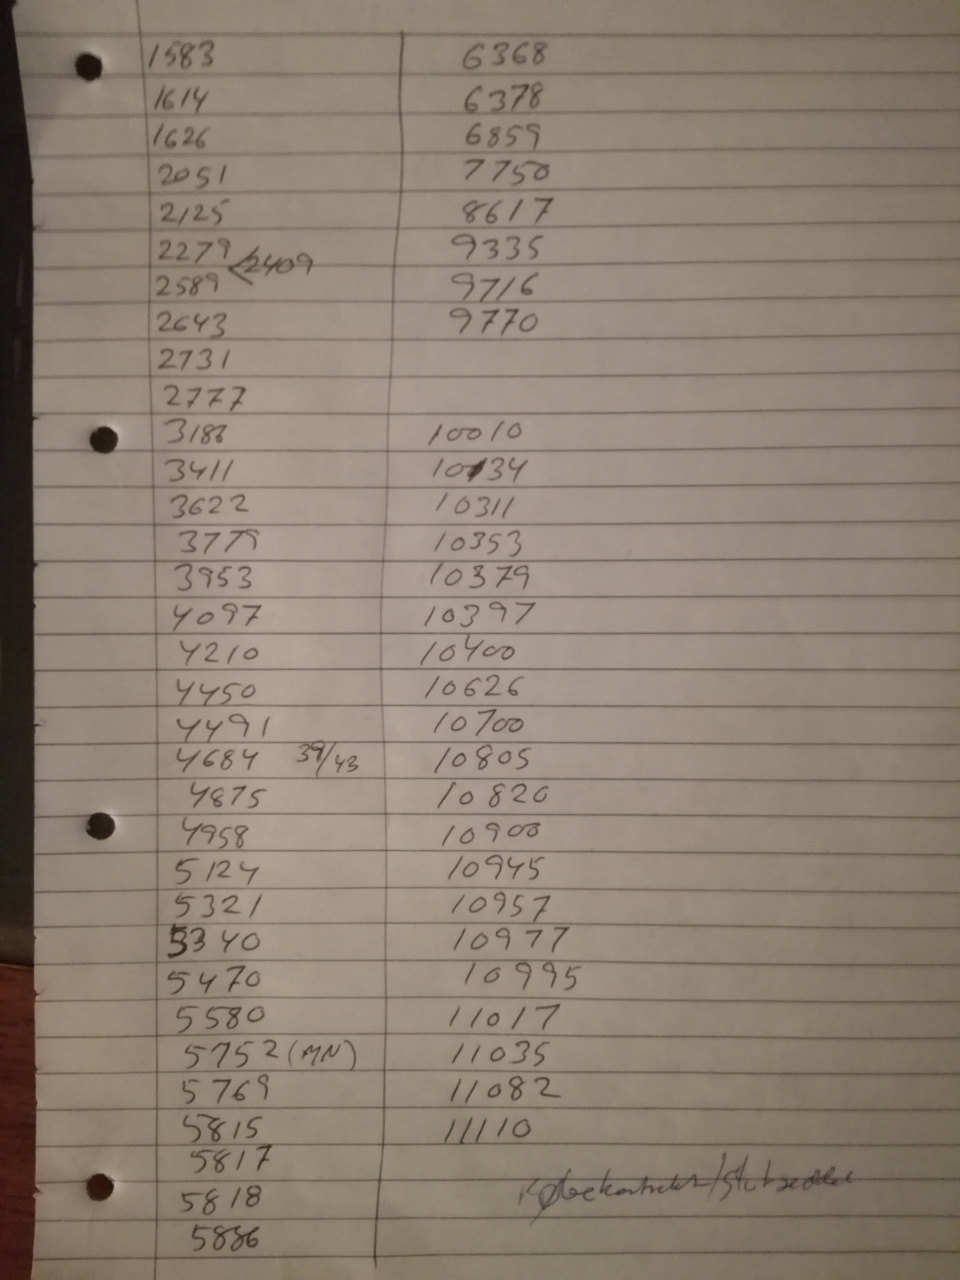 1583
1614
1626
2051
2125
2279
<2409
2589
2643
2731
2777
3186
3411
3622
3779
3953
4097
4210
4450
4491
4684 39/43
4875
4958
5124
5321
5340
5470
5580
5752 (MN)
5769
5815
5817
5818
5886
6368
6378
6859
7750
8617
9335
9716
9770
10010
10134
10311
10353
10379
10397
10400
10626
10700
10805
10820
10900
10945
10957
10977
10995
11017
11035
11082
11110